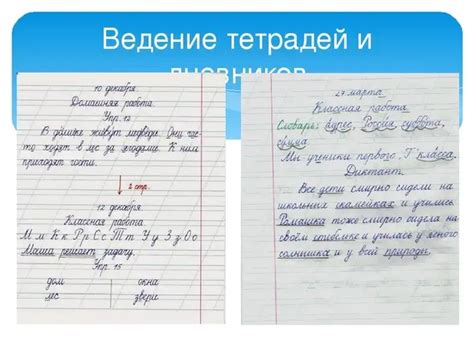 Ведение тетрадей и
дневников
10 декабря.
Домашняя работа.
Упр. 13
В домике живут медведи. Они час-
то ходят в лес за ягодами. К ним
приходят гости.
2 стр.
12 декабря.
Классная работа
М м К к Р р С с Т т У у З з О о
Маша решает задачу.
Упр. 15
дом окна
лес звери
24 марта.
Классная работа.
Словарь: Адрес, Россия, суббота,
сумма.
Мы ученики первого "Г" класса.
Диктант.
Все дети смирно сидели на
школьных скамейках и учились.
Ромашка тоже смирно сидела на
своём стебельке и училась у ясного
солнышка и у всей природы.